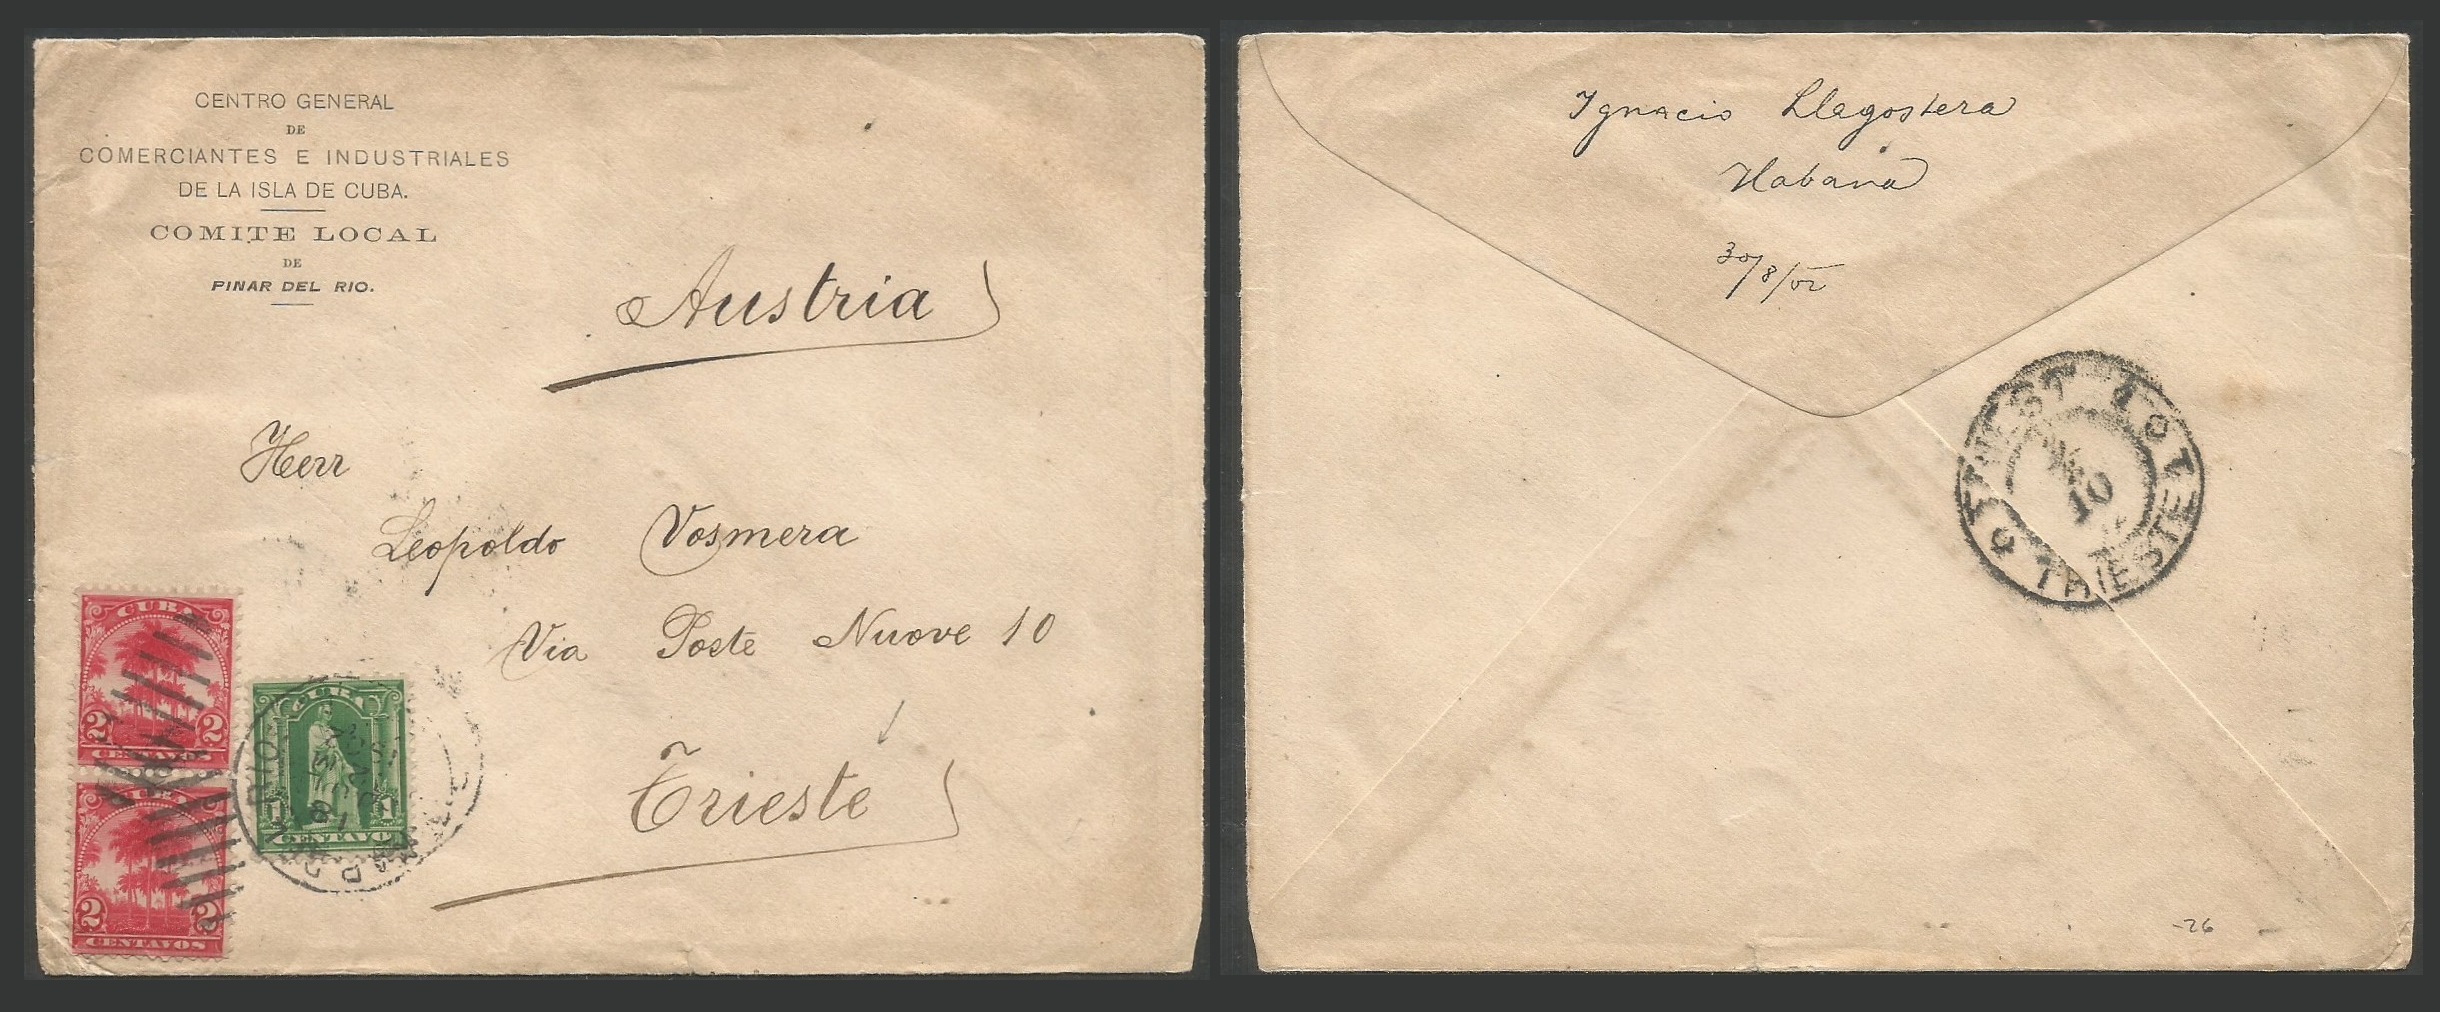 CENTRO GENERAL
DE
COMERCIANTES E INDUSTRIALES
DE LA ISLA DE CUBA.
COMITE LOCAL
DE
PINAR DEL RIO.
Austria
Herr
Leopoldo Vosmera
Via Poste Nuove 10
Trieste
CUBA
2 2
CENTAVOS
CUBA
2 2
CENTAVOS
CUBA
1 1
CENTAVO
Ignacio Llagostera
Habana
30/8/02
TRIEST
TRIESTE
10
-26